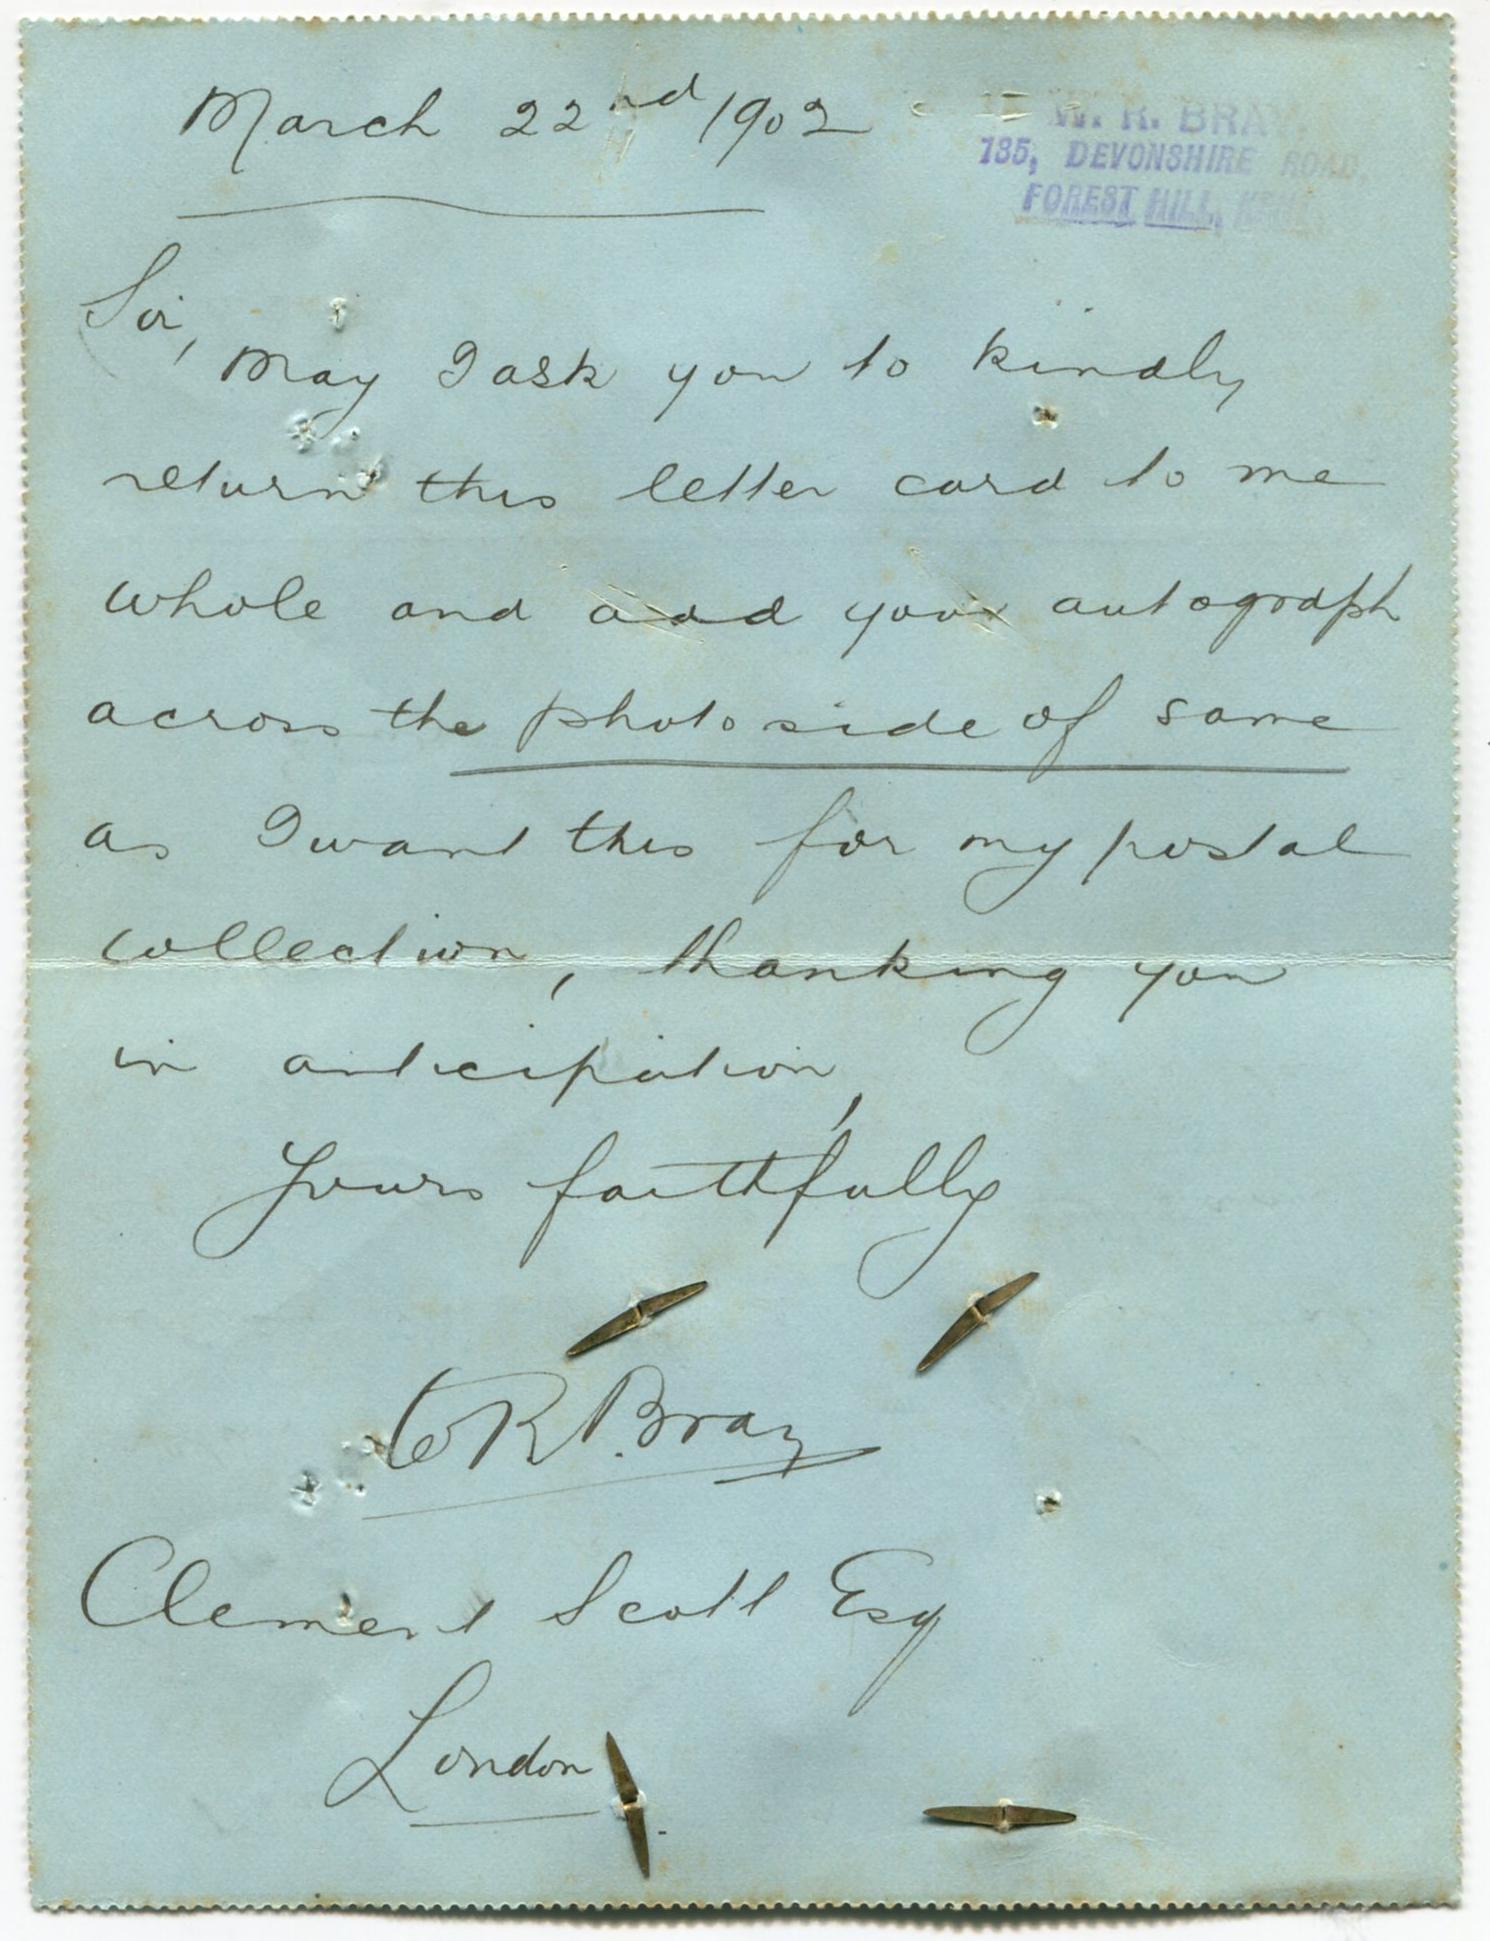 March 22nd 1902
W. R. BRAY.
135, DEVONSHIRE ROAD,
FOREST HILL, KENT.
Sir,
May I ask you to kindly
return this letter card to me
whole and add your autograph
across the photo side of same
as I want this for my postal
collection, thanking you
in anticipation,
Yours faithfully
W R. Bray
Clement Scott Esq
London